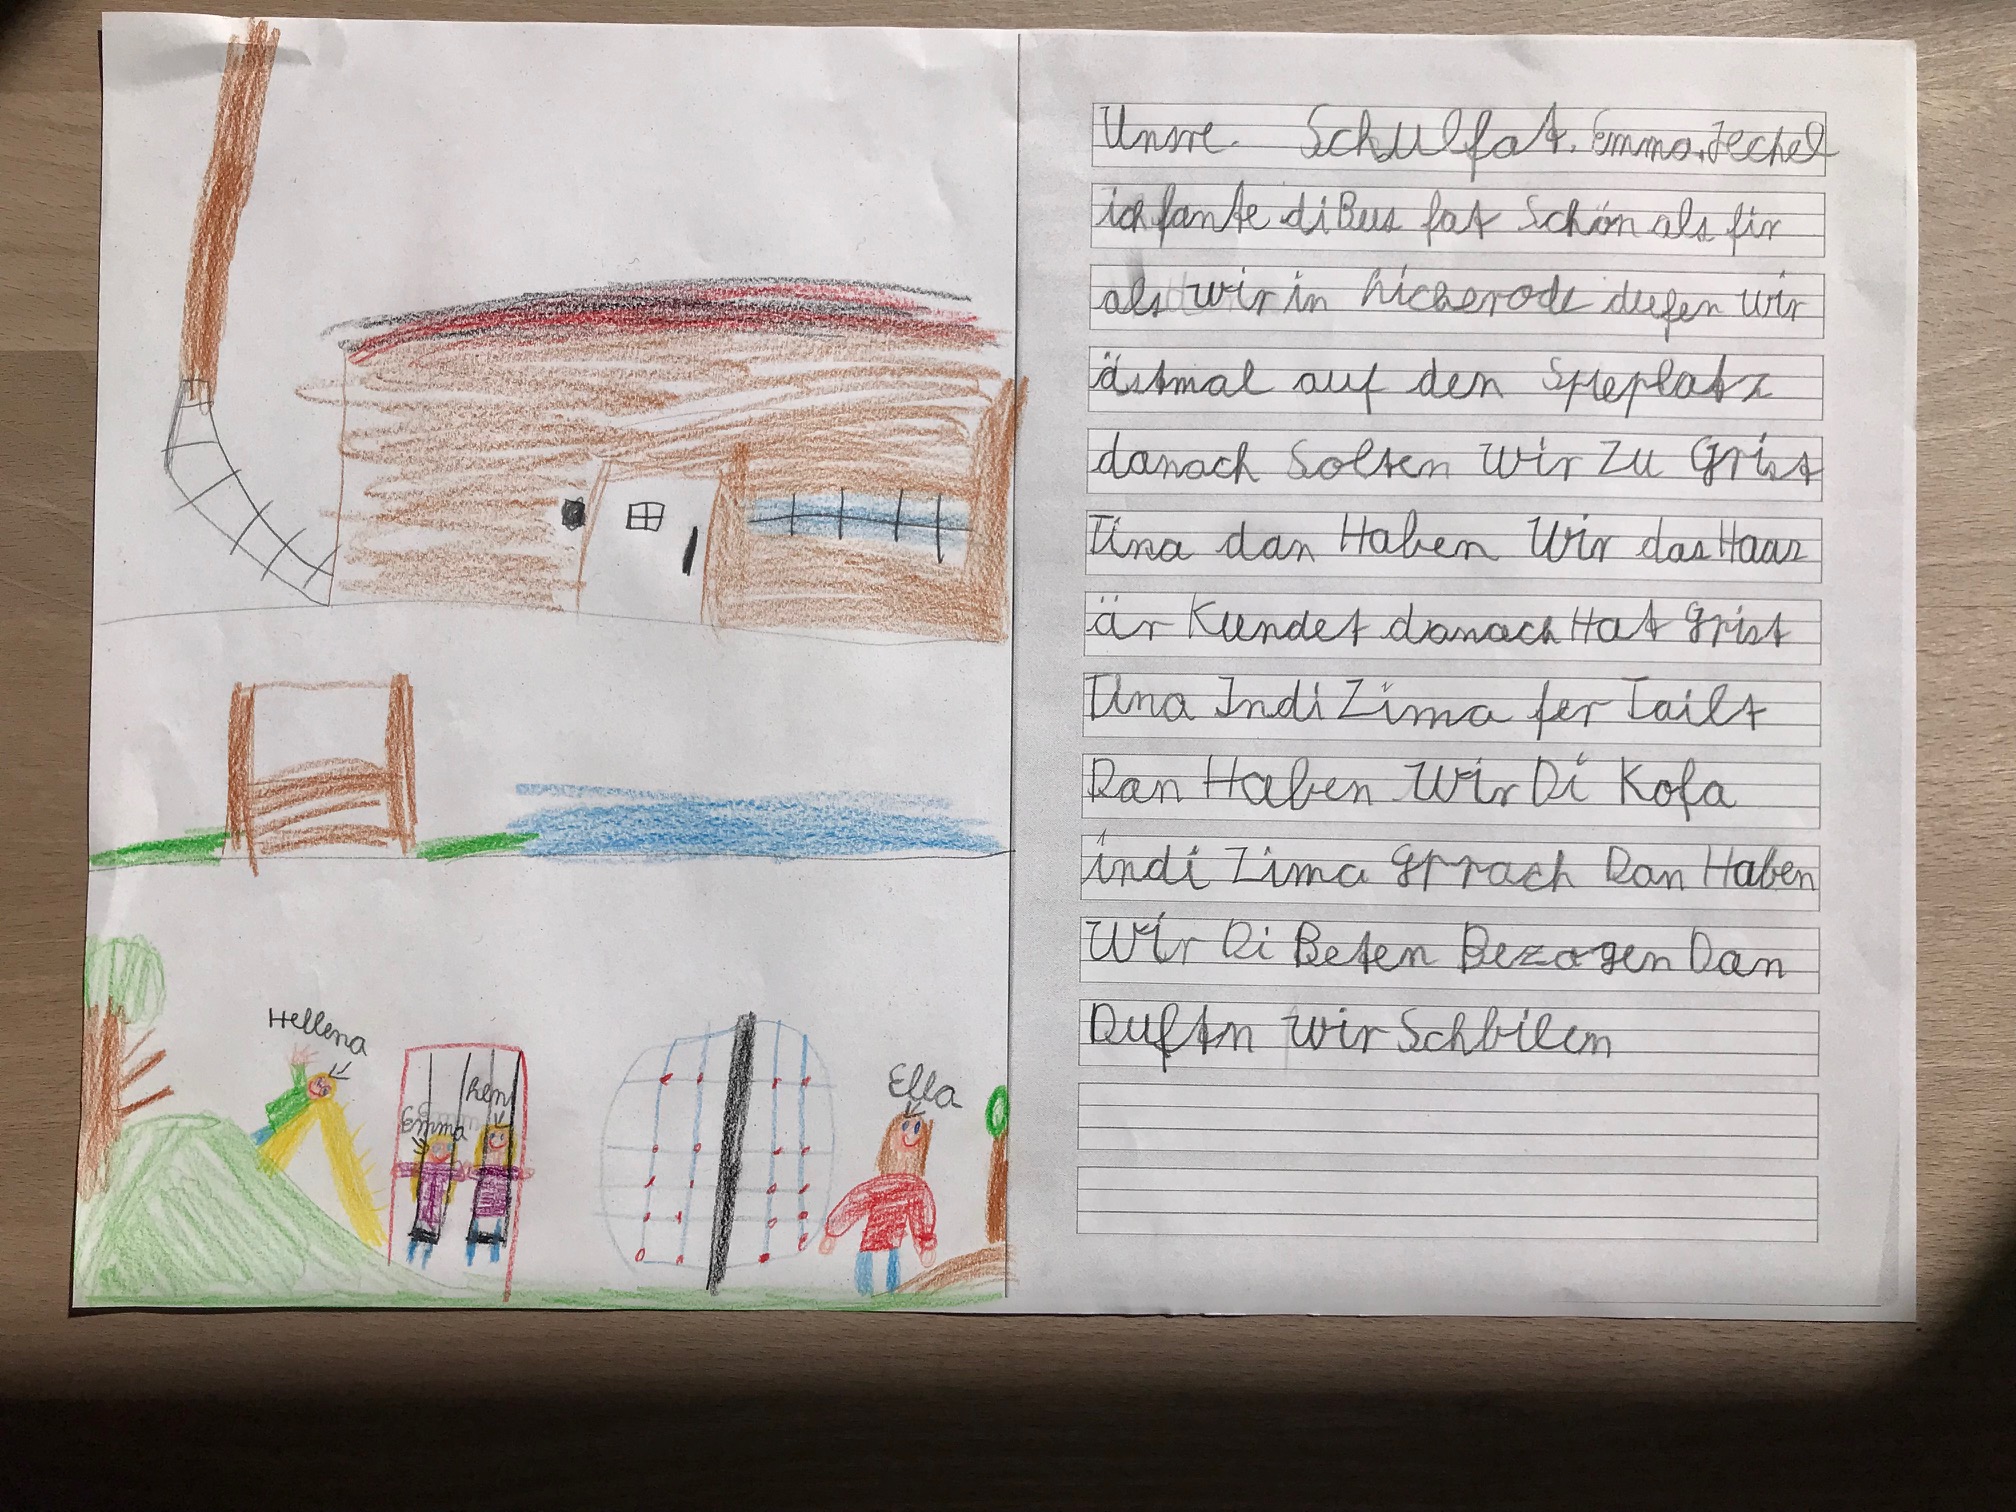 Unsre Schulfat. Emma. Jechel
ich fante di Bus fat Schön als fir
als wir in hicherode duefen wir
ästmal auf den Spieplatz
danach Solten Wir Zu Grist
Tina dan Haben Wir das Haus
är Kundet danach Hat Grist
Tina Indi Zima fer Tailt
Dan Haben Wir Di Kofa
indi Zima Gprach Dan Haben
Wir Di Beten Bezogen Dan
Duftn wir Schbilen
Hellena
Emma
Ella